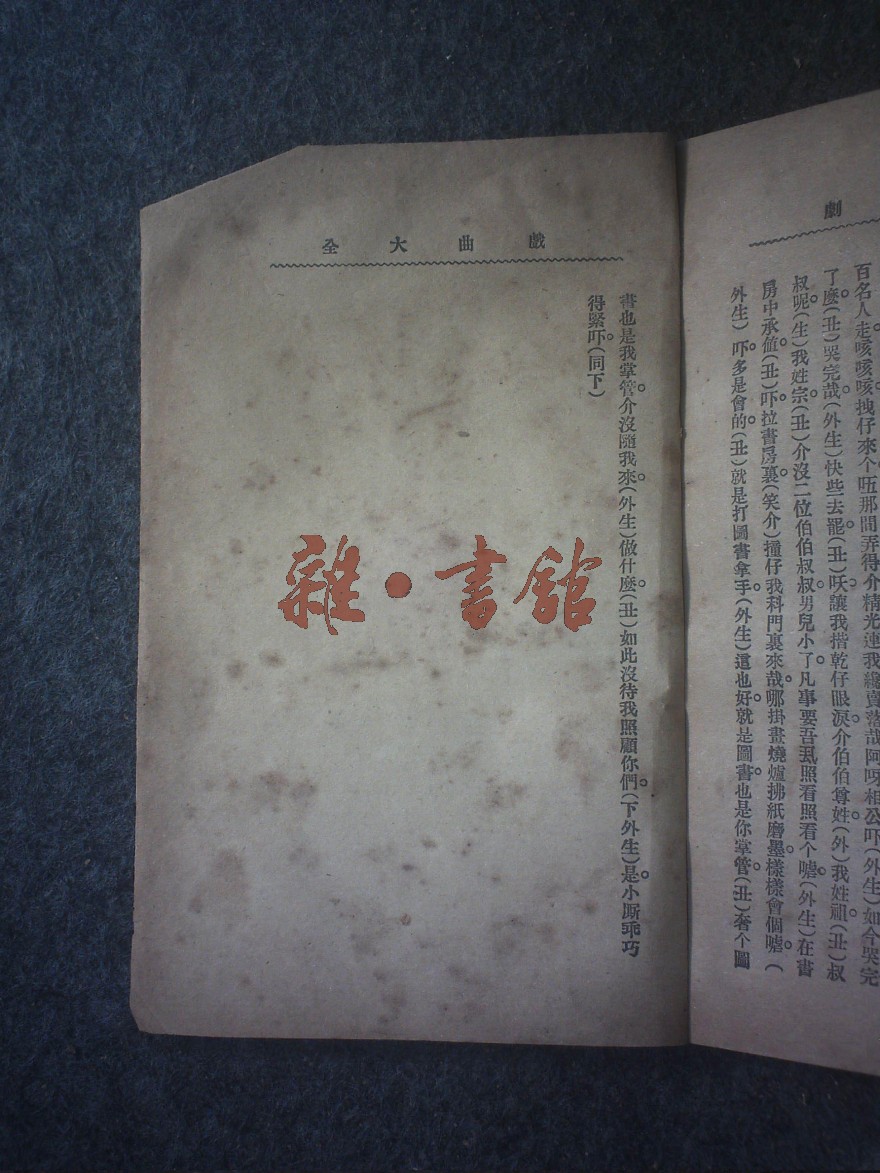 劇
百名人走咳咳咳拽仔來个匝那間弄得介精光連我纔賣落哉阿呀相公吓(外生)如今哭完
了麽(丑)哭完哉(外生)快些去罷(丑)呋讓我揩乾仔眼淚介伯伯尊姓(外)我姓祖(丑)叔
叔呢(生)我姓宗(丑)介沒二位伯伯叔叔男兒小了凡事要吾㑚照看照看个嘘(外生)在書
房中承值(丑)吓拉書房裏(笑介)撞仔我科門裏來哉哪掛畫燒爐拂紙磨墨樣樣會個嘘(
外生)吓多是會的(丑)就是打圖書拿手(外生)這也好就是圖書也是你掌管(丑)奢个圖
戲曲大全
書也是我掌管介沒隨我來(外生)做什麽(丑)如此沒待我照顧你們(下外生)是小廝乖巧
得緊吓(同下)
雜·書館